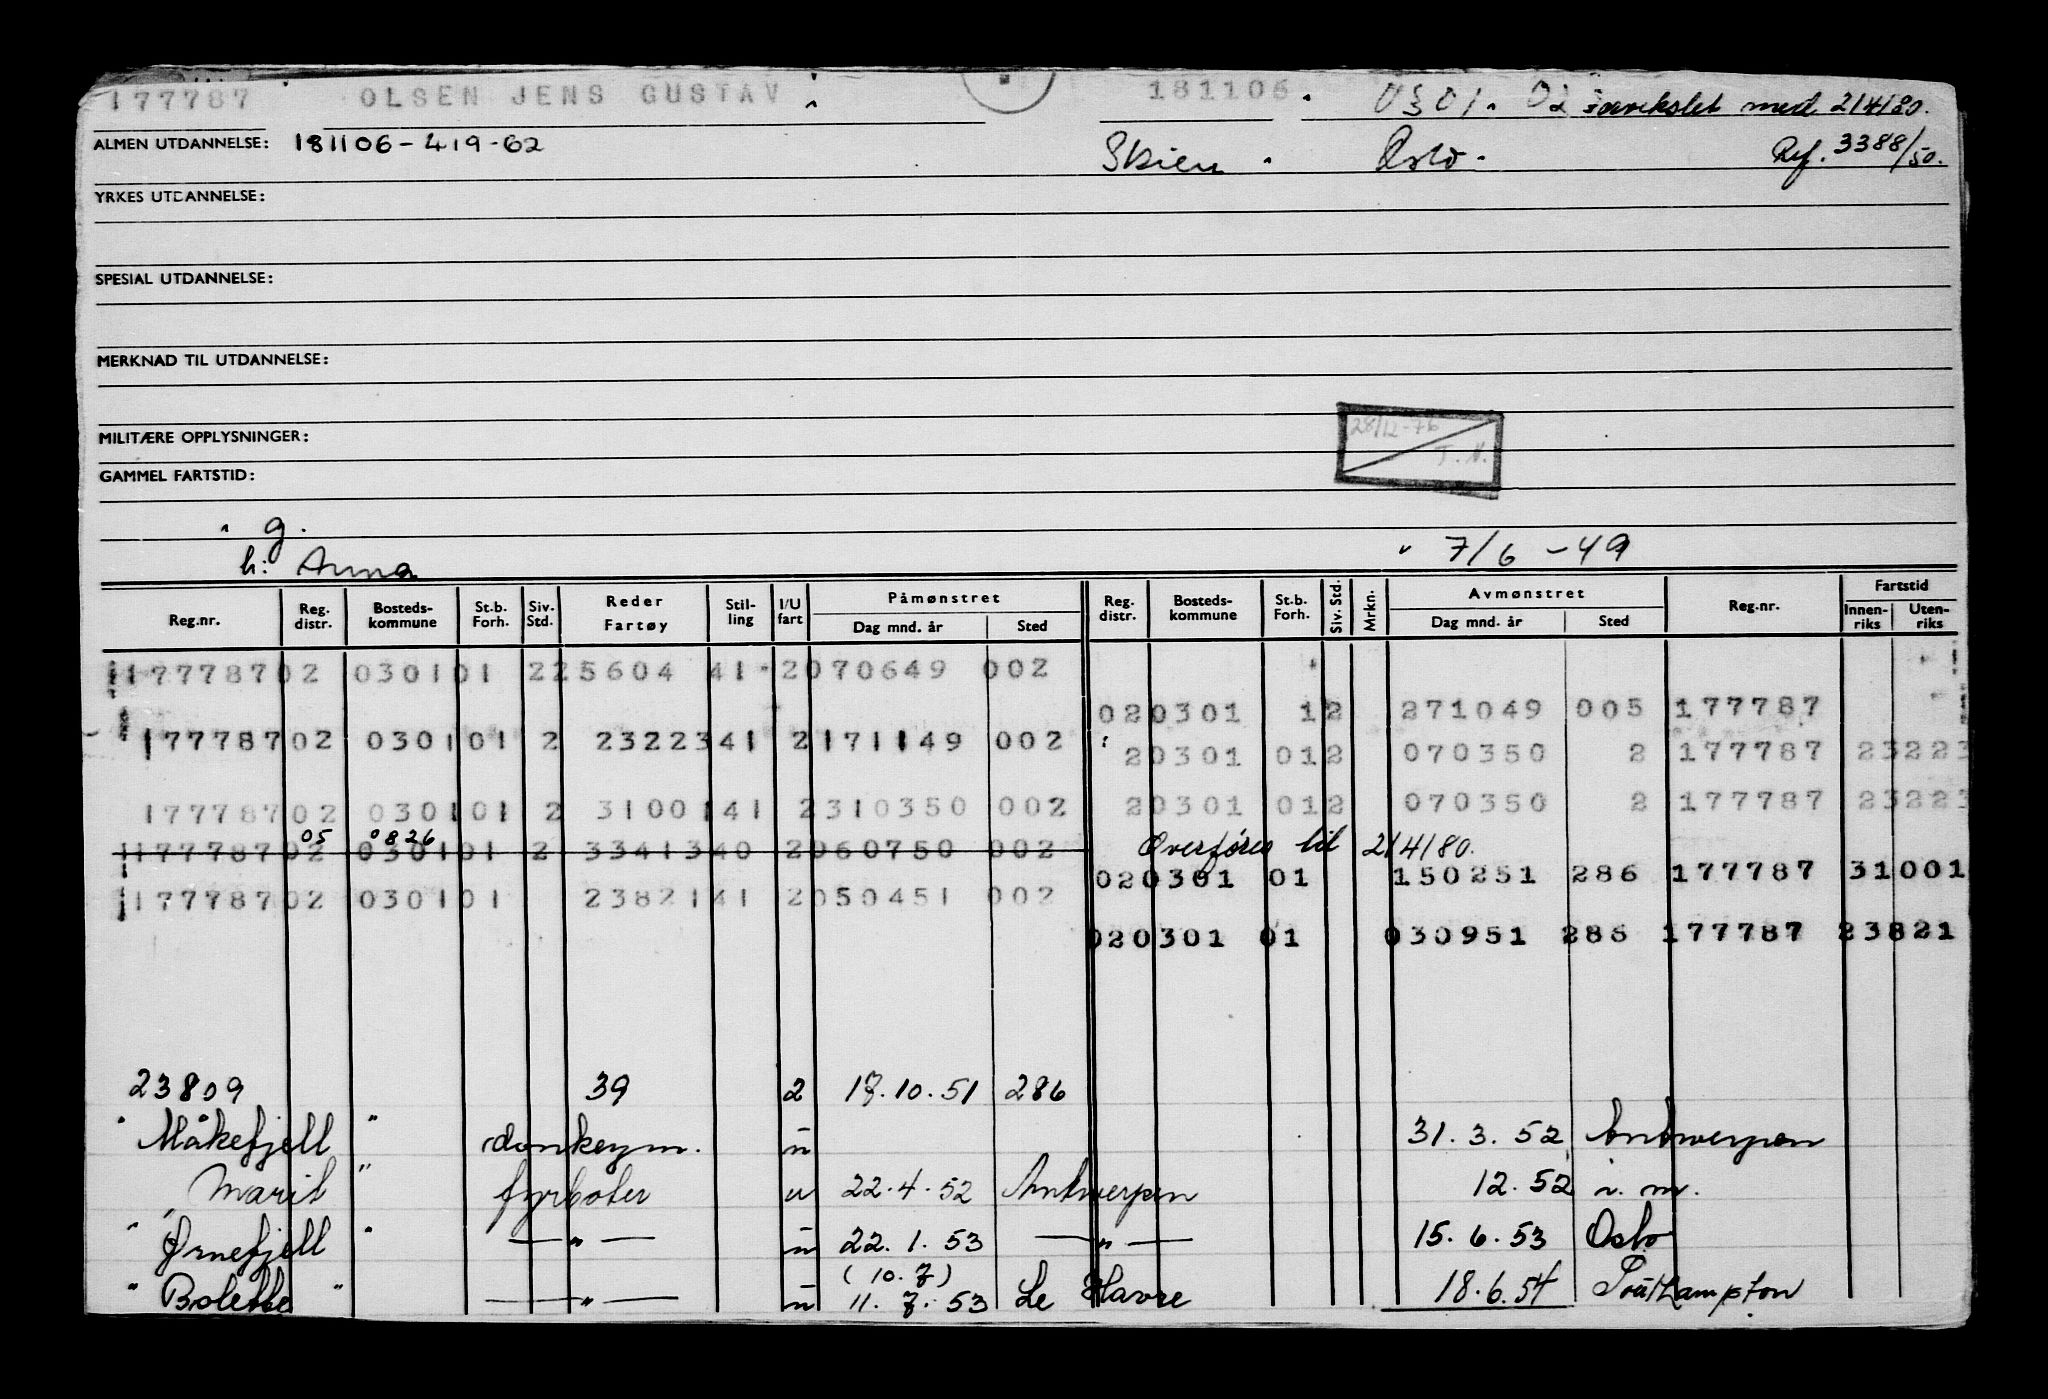 177787 OLSEN JENS GUSTAV 181106 0301. 02 forvekslet med 214180.
ALMEN UTDANNELSE: 181106-419-62 Skien Oslo. Ref. 3388/50.
YRKES UTDANNELSE:
SPESIAL UTDANNELSE:
MERKNAD TIL UTDANNELSE:
28/12-76
MILITÆRE OPPLYSNINGER: T.N.
GAMMEL FARTSTID:
" g.
h: Anna " 7/6-49
Reg.nr. Reg. distr. Bosteds-kommune St.b. Forh. Siv. Std. Reder Fartøy Stil-ling I/U fart Påmønstret Dag mnd. år Sted Reg. distr. Bosteds-kommune St.b. Forh. Siv. Std. Mrkn. Avmønstret Dag mnd. år Sted Reg.nr. Fartstid Innen-riks Uten-riks
177787 02 0301 01 2 25604 41 2 070649 002
02 0301 12 271049 005 177787
177787 02 0301 01 2 23223 41 2 171149 002
2 0301 01 2 070350 2 177787 23223
177787 02 0301 01 2 31001 41 2 310350 002 2 0301 01 2 070350 2 177787 23223
05 0826
177787 02 0301 01 2 33413 40 2 060750 002 Overføres til 214180.
02 0301 01 150251 286 177787 31001
177787 02 0301 01 23821 41 2 050451 002
02 0301 01 030951 286 177787 23821
23809 39 2 17.10.51 286
" Måkefjell " donkeym. u 31.3.52 Antwerpen
" Marit " fyrbøter u 22.4.52 Antwerpen 12.52 i.m.
" Ørnefjell " — " — u 22.1.53 — " — 15.6.53 Oslo
(10.7)
" Bolette " — " — u 11.7.53 Le Havre 18.6.54 Southampton